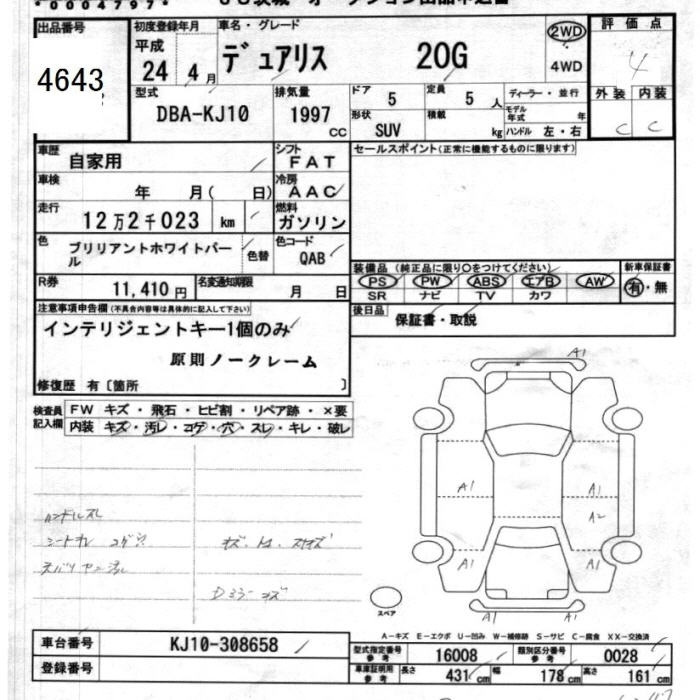 *0004797*
出品番号
4643
初度登録年月
平成
24 4 月
車名・グレード
デュアリス 20G
2WD
4WD
評価点
4
外装 内装
C C
型式
DBA-KJ10
排気量
1997 CC
ドア 5
定員 5 人
形状 SUV
積載 kg
ディーラー・並行
モデル年式 年
ハンドル 左・右
車歴 自家用
シフト FAT
セールスポイント(正常に機能するものに限ります)
車検 年 月( 日)
冷房 AAC
走行 12万2千023 km
燃料 ガソリン
色 ブリリアントホワイトパール
色替
色コード QAB
R券 11,410円
名変通知期限 月 日
装備品(純正品に限り○をつけてください)
新車保証書
PS PW ABS エアB AW
SR ナビ TV カワ
有・無
後日品 保証書・取説
注意事項申告欄(不具合内容等は具体的に記入して下さい)
インテリジェントキー1個のみ
原則ノークレーム
修復歴 有〔箇所 〕
検査員記入欄
FW キズ・飛石・ヒビ割・リペア跡・×要
内装 キズ・汚レ・コゲ・穴・スレ・キレ・破レ
A1
A1 A1
A2
A1 A1
A1
ハンドルスレ
スペア
A-キズ E-エクボ U-凹み W-補修跡 S-サビ C-腐食 XX-交換済
車台番号 KJ10-308658
登録番号
型式指定番号 参考 16008
類別区分番号 参考 0028
車庫証明用 参考
長さ 431 cm
幅 178 cm
高さ 161 cm